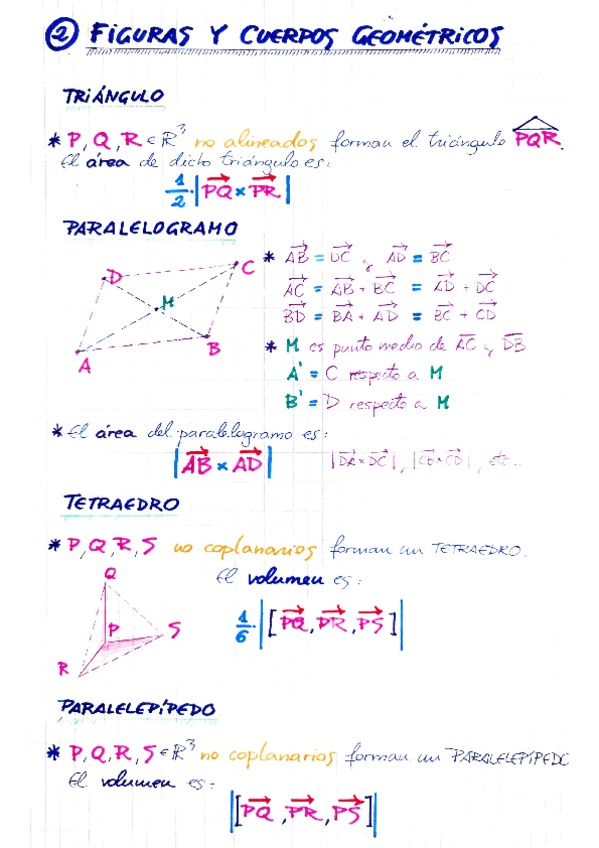 ② FIGURAS Y CUERPOS GEOMÉTRICOS
TRIÁNGULO
* P, Q, R ∈ ℝ³ no alineados forman el triángulo PQR.
El área de dicho triángulo es:
1/2·|PQ × PR|
PARALELOGRAMO
* AB = DC y AD = BC
AC = AB + BC = AD + DC
BD = BA + AD = BC + CD
D
C
M
A
B
* M es punto medio de AC y DB
A' = C respecto a M
B' = D respecto a M
* El área del paralelogramo es:
|AB × AD| |DA×DC|, etc...
TETRAEDRO
* P, Q, R, S no coplanarios forman un TETRAEDRO.
El volumen es:
1/6·|[PQ, PR, PS]|
Q
P
S
R
PARALELEPÍPEDO
* P, Q, R, S ∈ ℝ³ no coplanarios forman un PARALELEPÍPEDO
El volumen es:
|[PQ, PR, PS]|